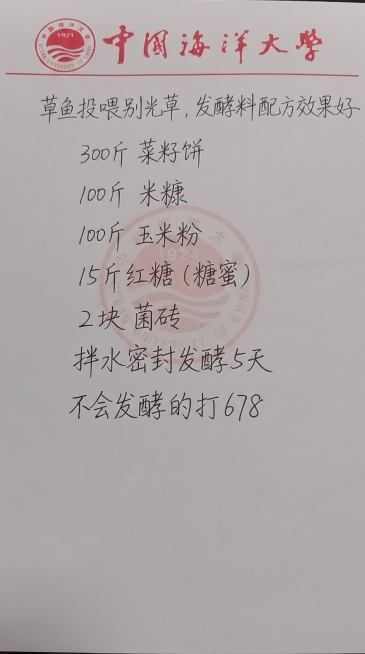 中国海洋大学
草鱼投喂别光草，发酵料配方效果好
300斤 菜籽饼
100斤 米糠
100斤 玉米粉
15斤红糖（糖蜜）
2块 菌砖
拌水密封发酵5天
不会发酵的打678